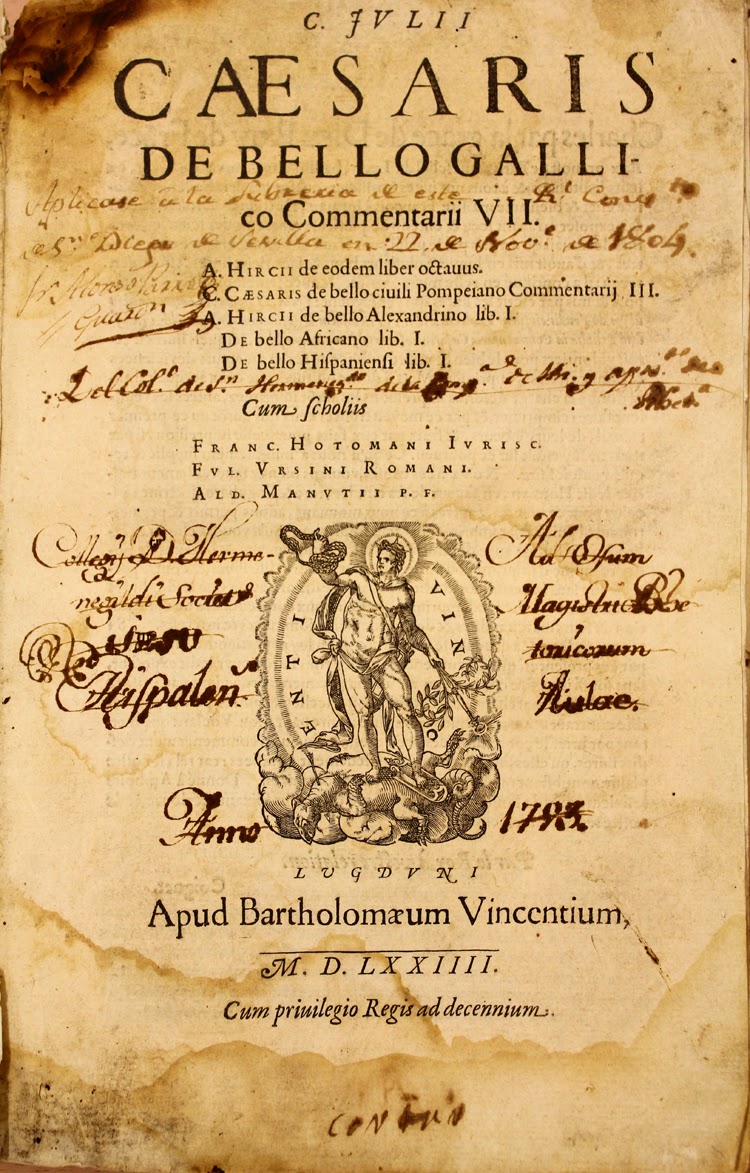 C. JVLII
CAESARIS
DE BELLO GALLI-
Aplicase a la Libreria de este Rl. Convto
co Commentarii VII.
de Sn. Diego de Sevilla en 22 de Novе. de 1804.
A. HIRCII de eodem liber octauus.
Fr. Alonso
C. CÆSARIS de bello ciuili Pompeiano Commentarij III.
A. HIRCII de bello Alexandrino lib. I.
DE bello Africano lib. I.
DE bello Hiſpanienſi lib. I.
Del Colo. de Sn. de la
Cum ſcholiis
FRANC. HOTOMANI IVRISC.
FVL. VRSINI ROMANI.
ALD. MANVTII P. F.
Collegij D. Herme-
negildi Societs.
Jesu
Hispalens.
VINCENTI
Ad Usum
Magistri Rhe
toricorum
Aulae.
Anno
LVGDVNI
Apud Bartholomæum Vincentium,
M. D. LXXIIII.
Cum priuilegio Regis ad decennium.